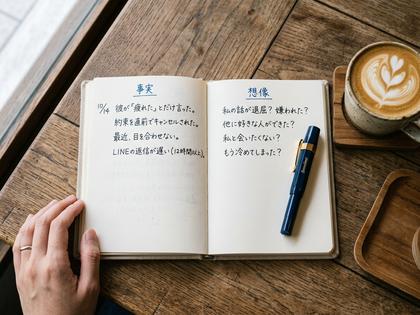 事実
10/14 彼が「疲れた」とだけ言った。
約束を直前でキャンセルされた。
最近、目を合わせない。
LINEの返信が遅い(12時間以上)。
想像
私の話が退屈?嫌われた?
他に好きな人ができた?
私と会いたくない?
もう冷めてしまった?